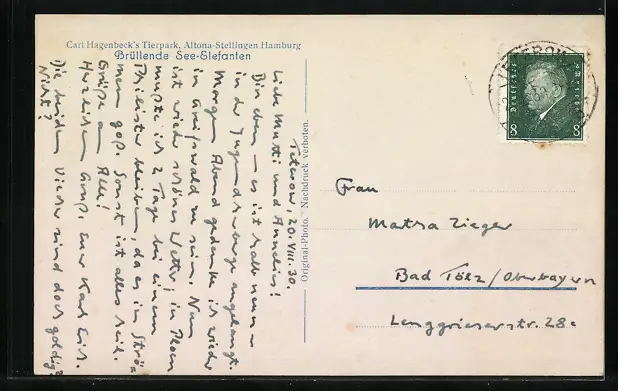 Carl Hagenbeck's Tierpark, Altona-Stellingen Hamburg
Brüllende See-Elefanten
Original-Photo. Nachdruck verboten.
Teterow, 20. VIII. 30.
Liebe Mutti und Annelies!
Bin eben – es ist halb neun –
in der Jugendherberge angelangt.
Morgen Abend gedenke ich wieder
in Greifswald zu sein. Nun
ist wieder schönes Wetter, in Ploen
mußte ich 2 Tage bei einem
Philister bleiben, da es in Strö-
men goß. Sonst ist alles heil.
Grüße an Alle!
Herzlichen Gruß, Euer Karl Erich.
Die beiden Viecher sind doch goldig?
Nicht?
Deutsches Reich
8 8
Frau
Martha Zieger
Bad Tölz/Oberbayern
Lenggrieserstr. 28c